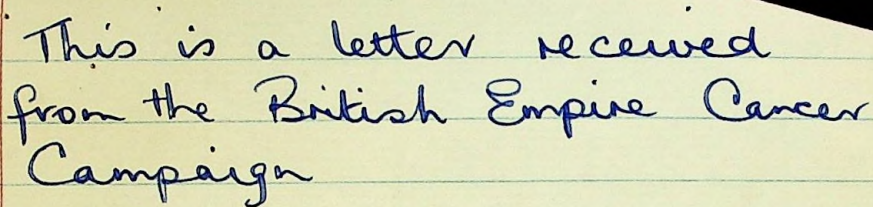 This is a letter received
from the British Empire Cancer
Campaign